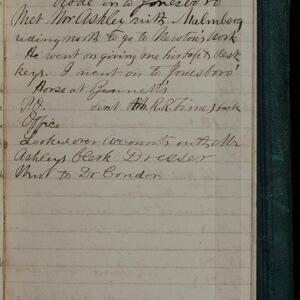 Rode in to Jonesboro
Met Mr Ashley with Mulmborg
riding north to go to Newton's work
He went on giving me his safe & desk
keys. I went on to Jonesboro'
Horse at Bennett's
P.O. sent R.R. Times back
Office
Looked over accounts with Mr
Ashley's Clerk Dresser
Went to Dr Condon